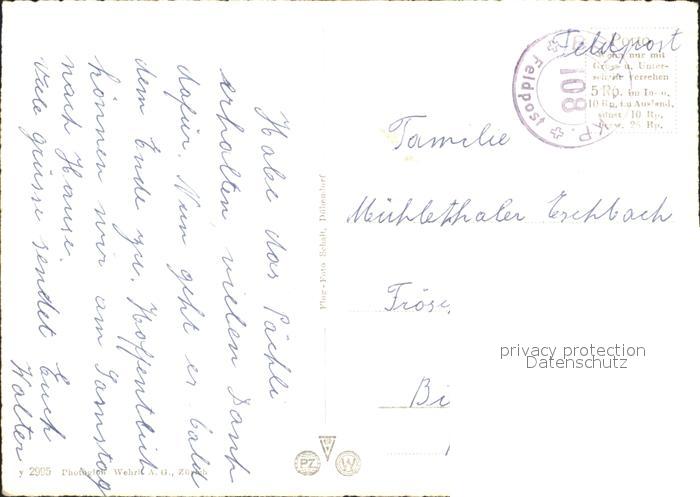 Habe das Päckli
erhalten, vielen Dank
dafür. Nun geht es bald
dem Ende zu. Hoffentlich
können wir am Samstag
nach Hause.
Viele grüsse sendet Euch
Walter
Feldpost
Porto
wenn nur mit
Gruss u. Unter-
schrift versehen
5 Rp. im Inland,
10 Rp. im Ausland,
sonst 10 Rp.
bzw. 25 Rp.
Feldpost
108
Familie
Mühlethaler Eschbach
Tröse
Bi
privacy protection
Datenschutz
Flug-Foto Schait, Dübendorf
PZ
W
y 2995 Photoglob Wehrli A. G., Zürich